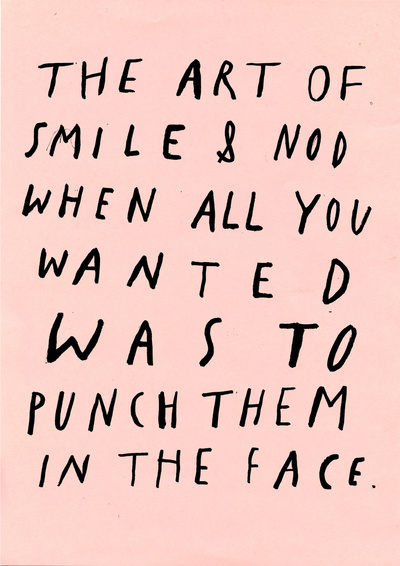 THE ART OF
SMILE & NOD
WHEN ALL YOU
WANTED
WAS TO
PUNCH THEM
IN THE FACE.